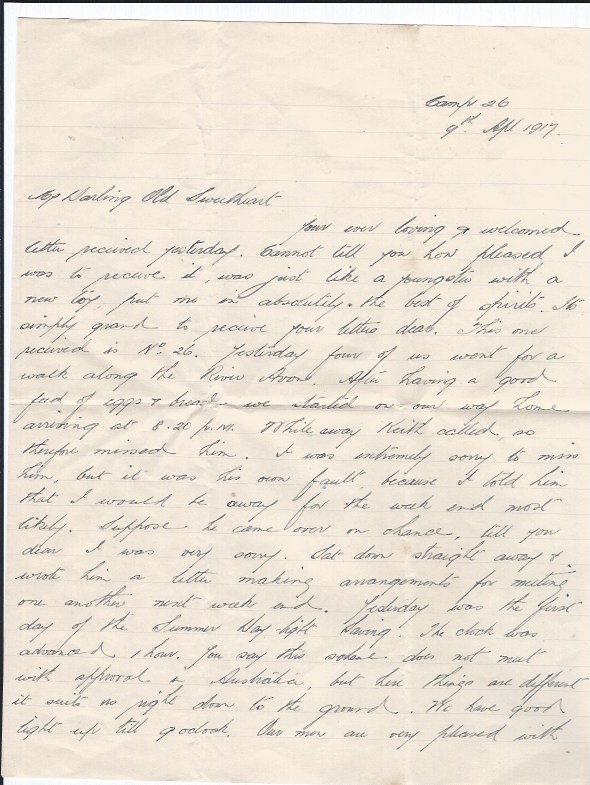 Camp 26
9th Apl 1917.
My Darling Old Sweetheart
Your ever loving & welcomed
letter received yesterday. Cannot tell you how pleased I
was to receive it, was just like a youngster with a
new toy, put me in absolutely the best of spirits. Its
simply grand to receive your letters dear. This one
received is No. 26. Yesterday four of us went for a
walk along the River Avon. After having a good
feed of eggs & bread we started on our way home
arriving at 8.20 p.m. While away Keith called, so
therefore missed him. I was extremely sorry to miss
him, but it was his own fault, because I told him
that I would be away for the week end most
likely. Suppose he came over on chance, tell you
dear I was very sorry. Sat down straight away &
wrote him a letter making arrangements for meeting
one another next week end. Yesterday was the first
day of the Summer Day-light Saving. The clock was
advanced 1 hour. You say this scheme does not meet
with approval in Australia, but here things are different
it suits us right down to the ground. We have good
light up till 9 oclock. Our men are very pleased with